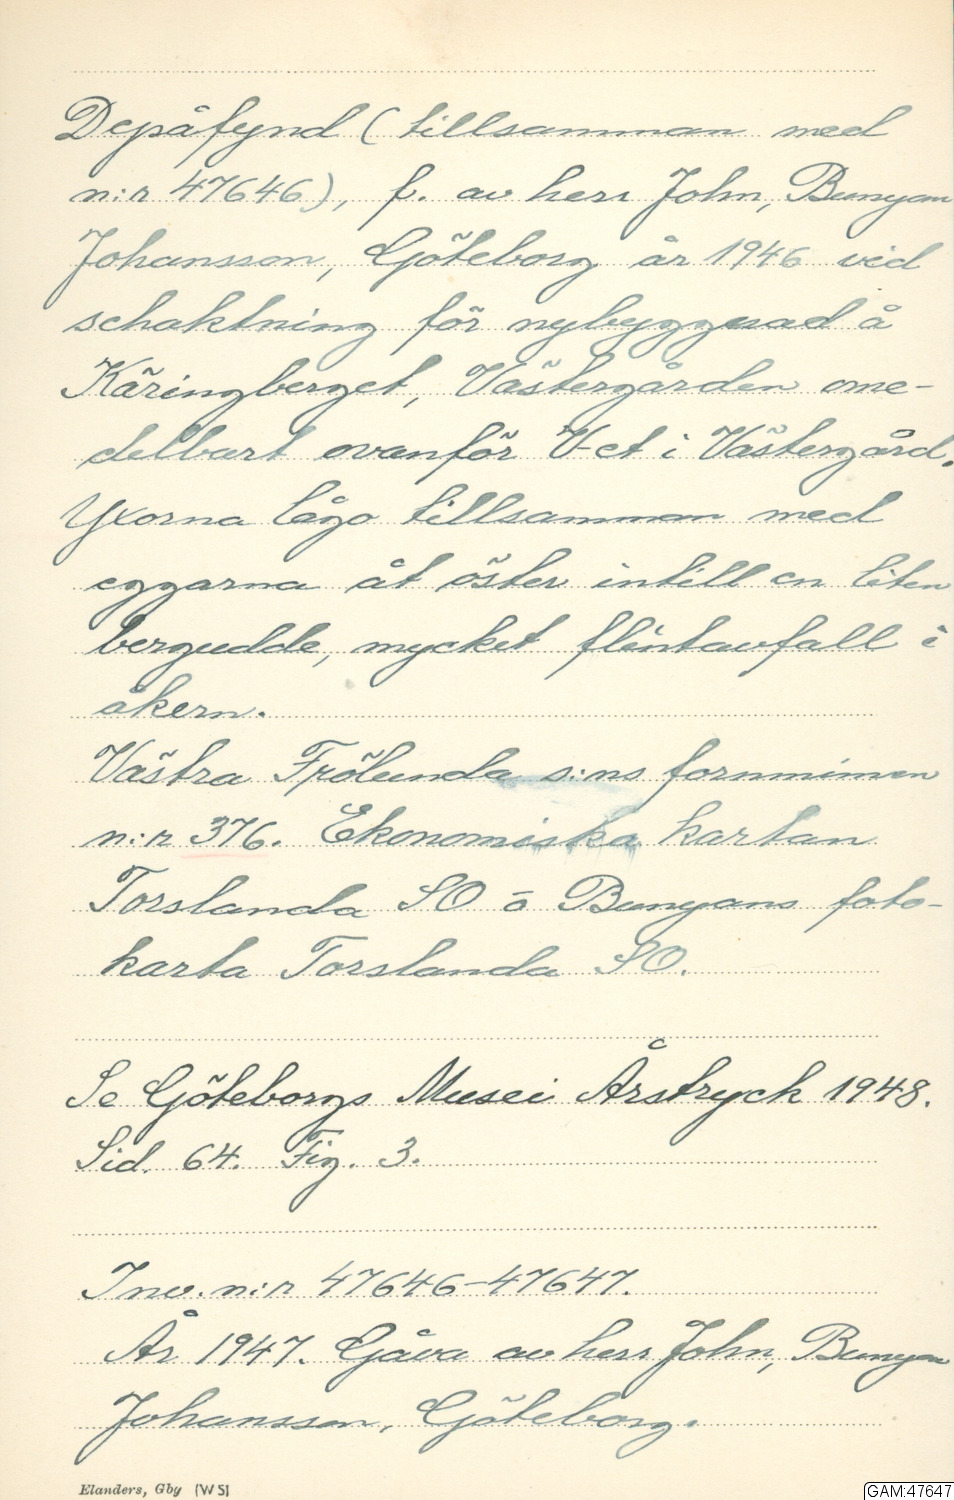 Depåfynd (tillsamman med
n:r 47646), f. av herr John, Bunyan
Johansson, Göteborg år 1946 vid
schaktning för nybyggnad å
Käringberget, Västergården ome-
delbart ovanför V-et i Västergård.
Yxorna lågo tillsamman med
eggarna åt öster intill en liten
bergudde, mycket flintavfall i
åkern.
Västra Frölunda s:ns fornminnen
n:r 376. Ekonomiska kartan
Torslanda SO o Bunyans foto-
karta Torslanda SO.
Se Göteborgs Musei Årstryck 1948.
Sid. 64. Fig. 3.
Inv. n:r 47646-47647.
År 1947. Gåva av herr John, Bunyan
Johansson, Göteborg.
Elanders, Gby (W S)
GAM:47647